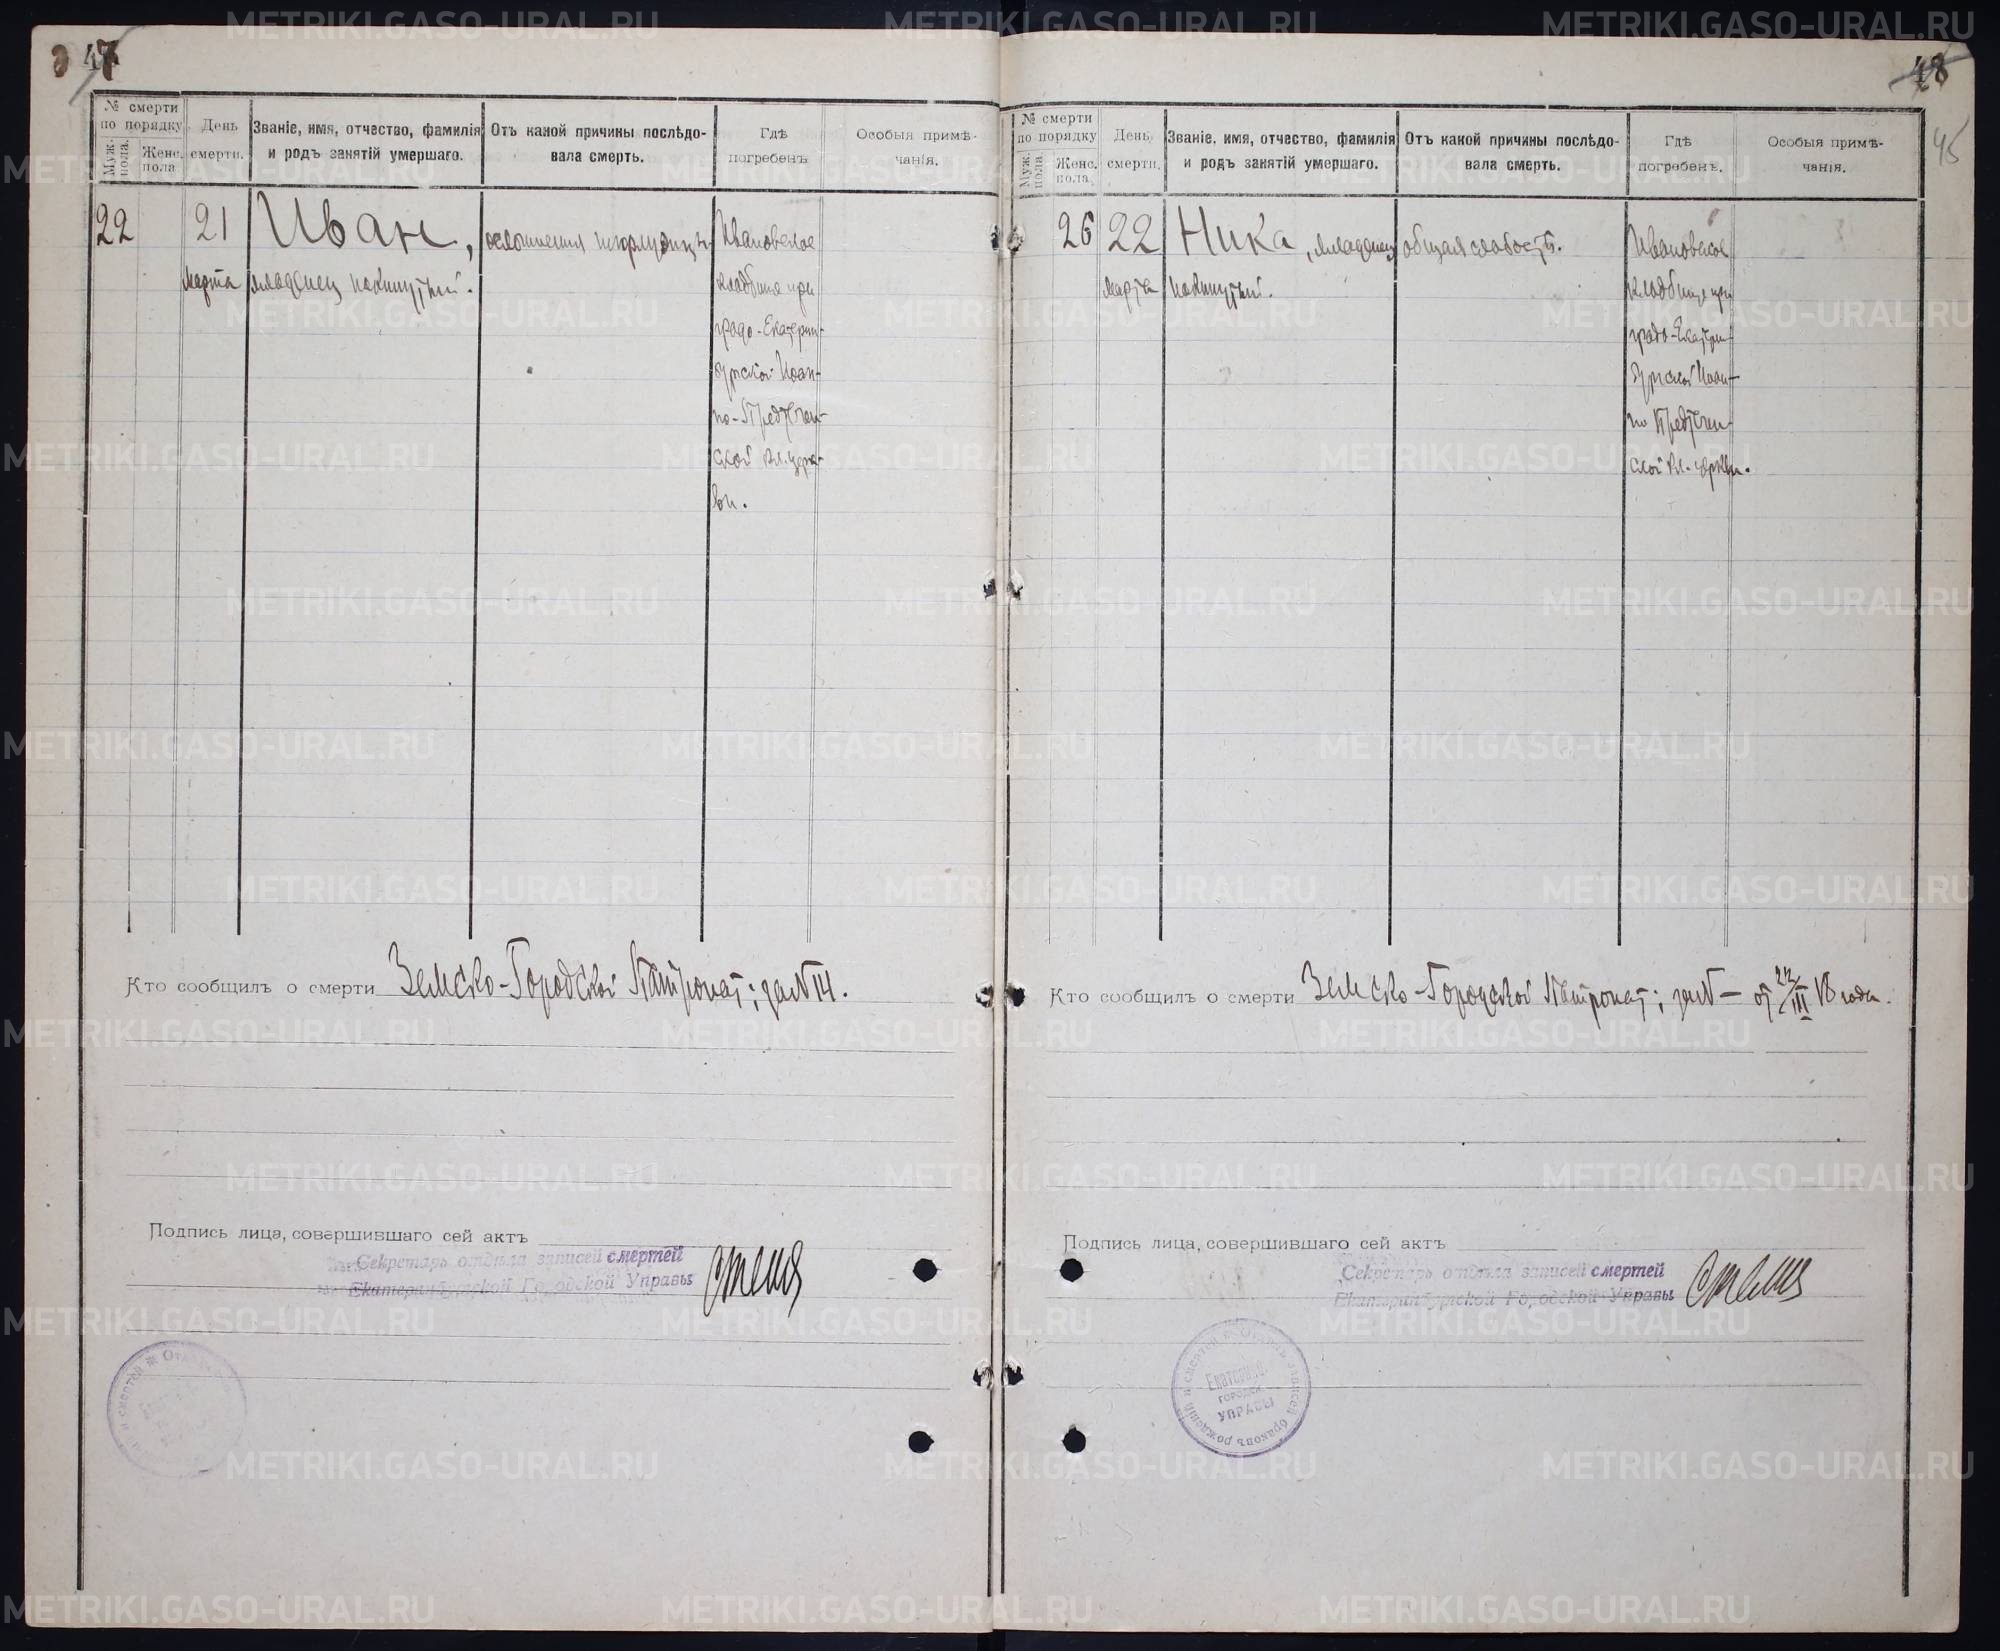 47
№ смерти по порядку
Муж. пола.
Женс. пола
День смерти.
Званіе, имя, отчество, фамилія и родъ занятій умершаго.
Отъ какой причины послѣдовала смерть.
Гдѣ погребенъ
Особыя примѣчанія.
22
21
марта
Иван,
младенец покинутый.
Ивановское
кладбище при
градо-Екатерин-
бургской Иоан-
но-Предтечен-
ской кл. церк-
ви.
Кто сообщилъ о смерти Земско-Городской Патронат; за №
Подпись лица, совершившаго сей актъ
Секретарь отдѣла записей смертей
Екатеринбургской Городской Управы
48
45
№ смерти по порядку
Муж. пола.
Женс. пола.
День смерти.
Званіе, имя, отчество, фамилія и родъ занятій умершаго.
Отъ какой причины послѣдовала смерть.
Гдѣ погребенъ.
Особыя примѣчанія.
26
22
марта
Ника, младенец
покинутый.
общая слабость.
Ивановское
кладбище при
градо-Екатерин-
бургской Иоан-
но Предтечен-
ской кл. церкви.
Кто сообщилъ о смерти Земско-Городской Патронат; за № — от 22/III 18 года.
Подпись лица, совершившаго сей актъ
Секретарь отдѣла записей смертей
Екатеринбургской Городской Управы
Отдѣлъ записей браковъ рожденій и смертей
Екатеринб.
городск.
УПРАВЫ
METRIKI.GASO-URAL.RU